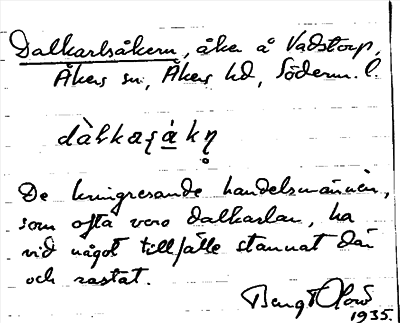 Dalkarlsåkern, åker å Vadstorp,
Åkers sn, Åkers hd, Söderm. l.
De kringresande handelsmännen,
som ofta voro dalkarlar, ha
vid något tillfälle stannat där
och rastat.
Bengt Olow
1935.